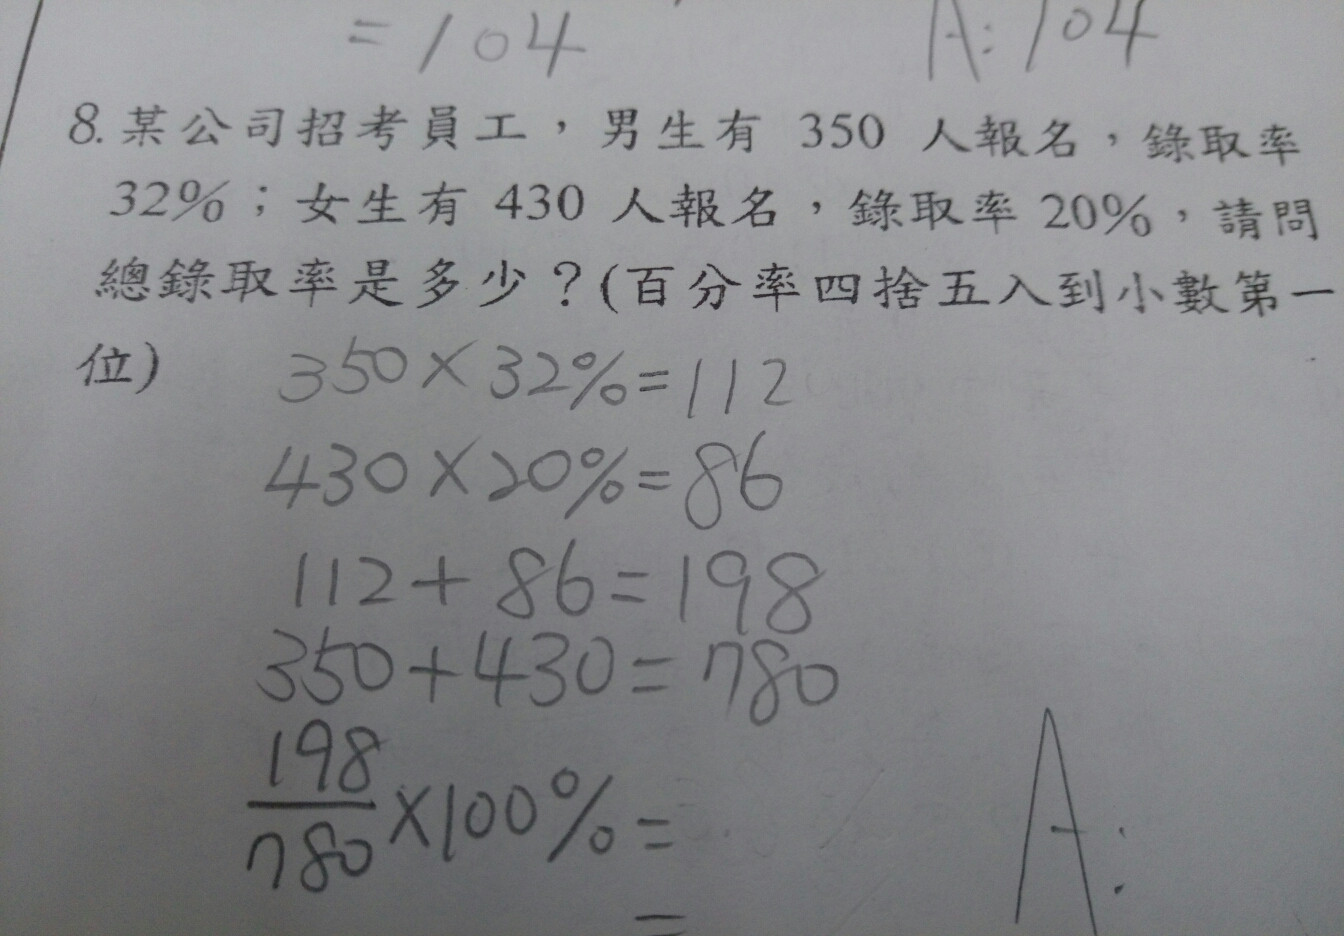 = 104 A: 104
8. 某公司招考員工，男生有 350 人報名，錄取率
32%；女生有 430 人報名，錄取率 20%，請問
總錄取率是多少？(百分率四捨五入到小數第一
位) 350 × 32% = 112
430 × 20% = 86
112 + 86 = 198
350 + 430 = 780
198/780 × 100% =
= A: